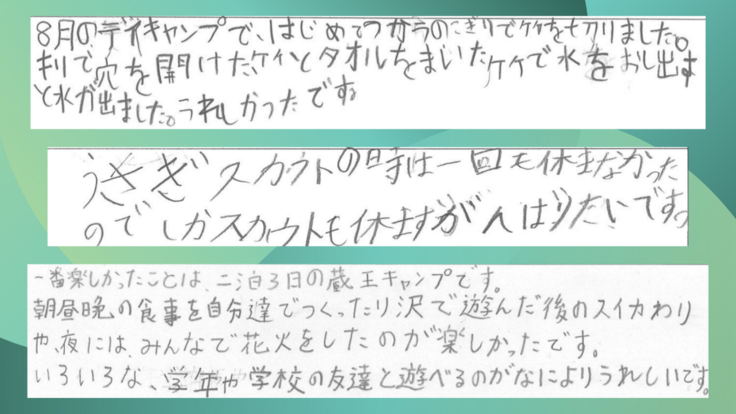 8月のデイキャンプで、はじめてつかうのこぎりで竹を切りました。
キリで穴を開けた竹とタオルをまいた竹で水をおし出す
と水が出ました。うれしかったです
うさぎスカウトの時は一回も休まなかった
のでしかスカウトも休まずがんばりたいです。
一番楽しかったことは、二泊3日の蔵王キャンプです。
朝昼晩の食事を自分達でつくったり沢で遊んだ後のスイカわり
や、夜には、みんなで花火をしたのが楽しかったです。
いろいろな、学年や学校の友達と遊べるのがなによりうれしいです。